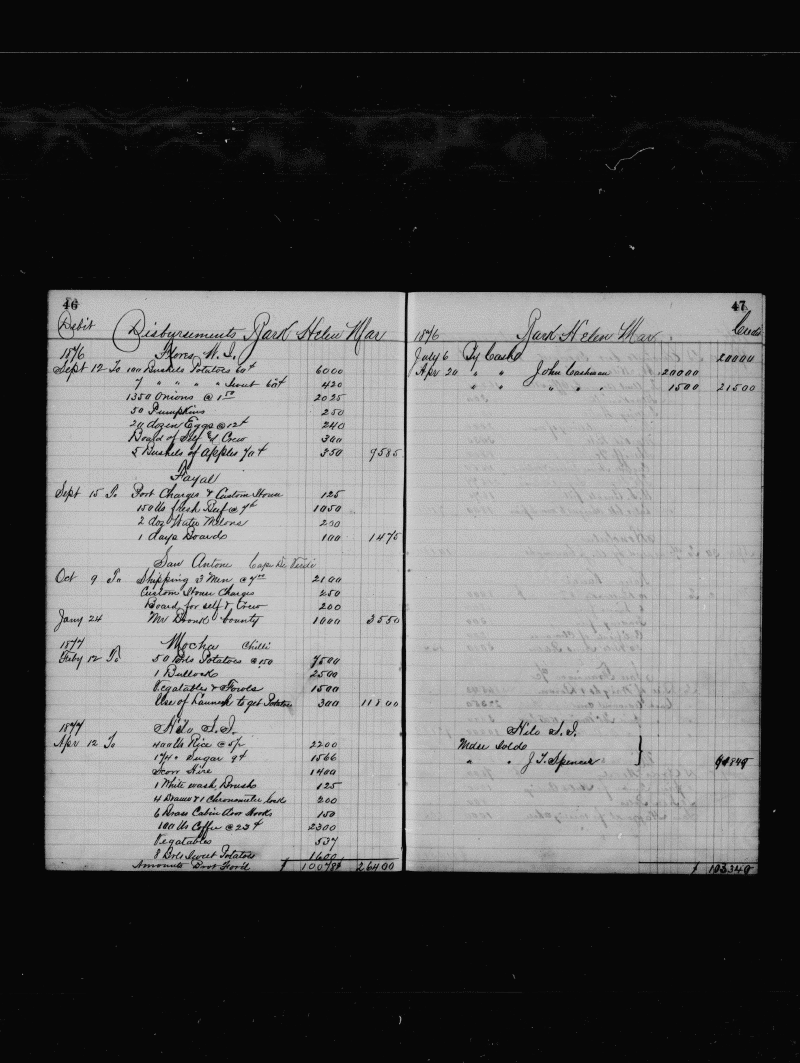 46
Debit Disbursements Bark Helen Mar
1876 Flores W. I.
Sept 12 To 100 Bushels Potatoes 60¢ 6000
7 " " " " 60¢ 420
1350 Onions @ 1 50 2025
50 Pumpkins 250
20 dozen Eggs @ 12¢ 240
Board of Self & Crew 300
5 Bushels of Apples 70¢ 350 9585
Fayal
Sept 15 To Port Charges & Custom House 125
150 lbs fresh Beef @ 7¢ 1050
2 doz Water Melons 200
1 days Boards 100 1475
San Antone Cape De Verde
Oct 9 To Shipping 3 Men @ 7 00 2100
Custom House Charges 250
Board for self & Crew 200
Jany 24 Mr bounty 1000 3550
1877 Mocha Chilli
Feby 12 To 50 Bbls Potatoes @ 150 7500
1 Bullock 2500
Vegatables & Fowls 1500
Use of Launch to get Potatoes 300 11800
1877 Hilo S. I.
Apr 12 To 400 lbs Rice @ 5½ 2200
174 " Sugar 9¢ 1566
Hire 1400
1 White wash Brush 125
4 & 1 Chronometer 200
6 Brass Cabin door Hooks 150
100 lbs Coffee @ 23¢ 2300
Vegatables 537
8 Bbls Sweet Potatoes 1600
Amounts For'd $ 26400
47
1876 Bark Helen Mar. Credit
July 6 By Cash 20000
Apr 20 " " John Cashman 20000
" " " " 1500 21500
Hilo S. I.
Mdse Sold
" " J. T. Spencer
$